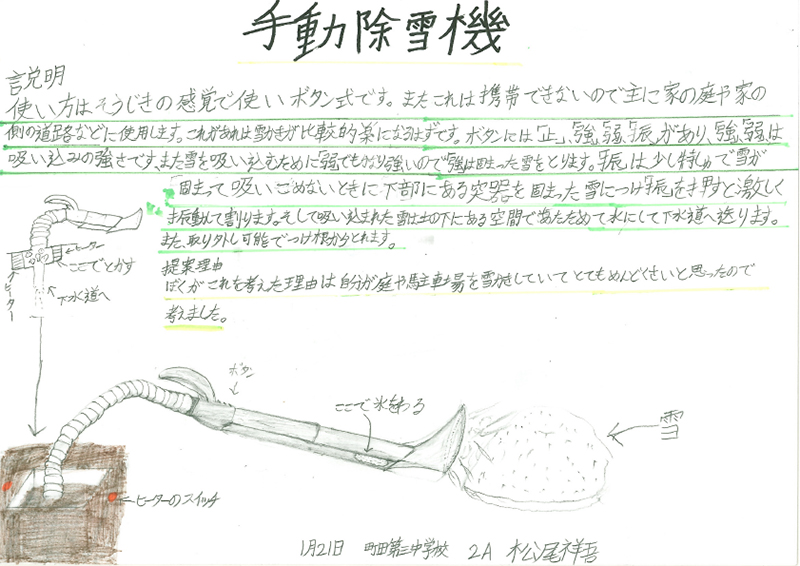 手動除雪機
説明
使い方はそうじきの感覚で使いボタン式です。またこれは携帯できないので主に家の庭や家の
側の道路などに使用します。これがあれば雪かきが比較的楽になるはずです。ボタンには「止」、「強」、「弱」、「振」があり、「強」、「弱」は
吸い込みの強さです、また雪を吸い込むために「弱」でもかなり強いので「強」は固まった雪をとります。「振」は少し特しゅで雪が
固まって吸いこめないときに下部にある突器を固まった雪につけ「振」を押すと激しく
振動して割ります。そして吸い込まれた雪は土の下にある空間であたためて水にして下水道へ送ります。
また、取り外し可能でつけ根からとれます。
提案理由
ぼくがこれを考えた理由は自分が庭や駐車場を雪かきしていてとてもめんどくさいと思ったので
考えました。
ヒーター
ここでとかす
ヒーター
下水道へ
ボタン
ここで氷をわる
雪
ヒーターのスイッチ
1月21日 町田第三中学校 2A 松尾祥吾